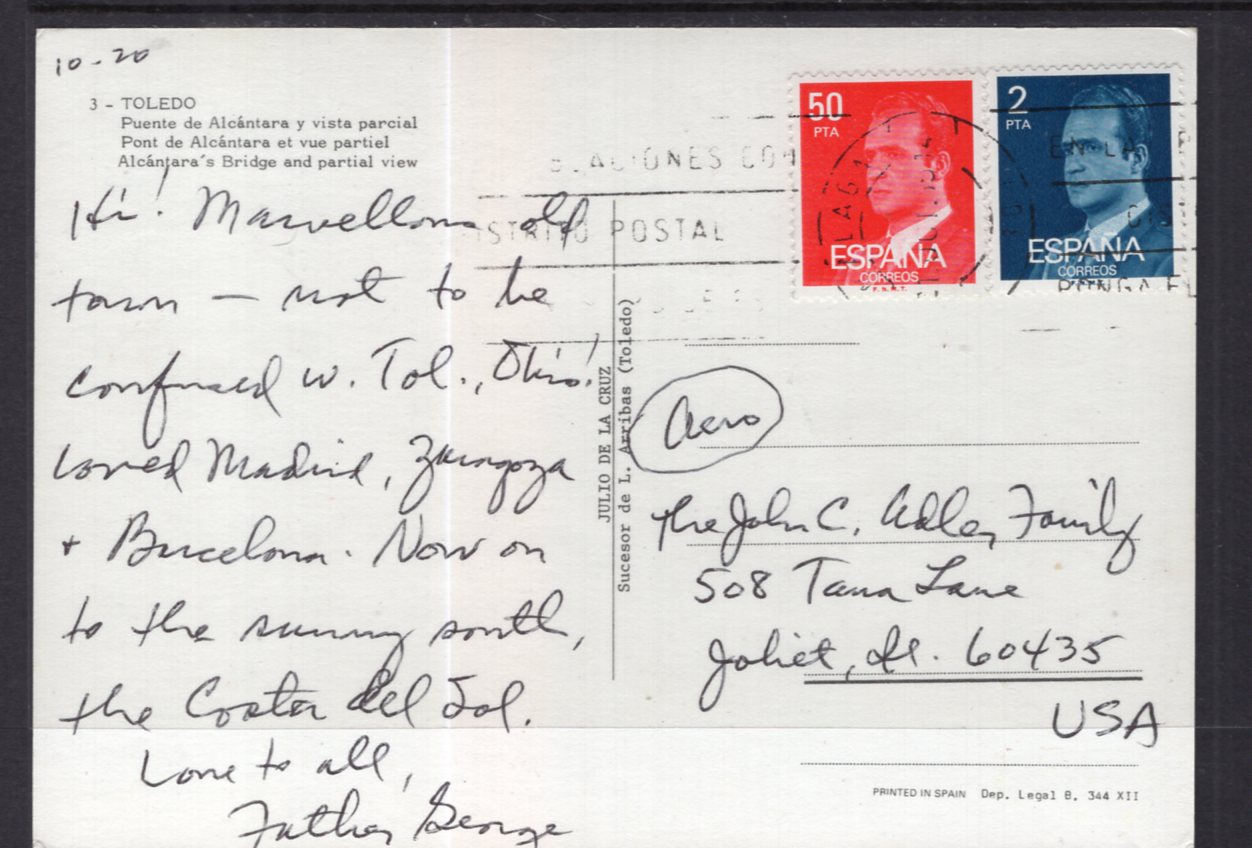 10-20
3 - TOLEDO
Puente de Alcántara y vista parcial
Pont de Alcántara et vue partiel
Alcántara's Bridge and partial view
Hi! Marvellous old
town — not to be
confused w. Tol., Ohio!
Loved Madrid, Zaragoza
+ Barcelona. Now on
to the sunny south,
the Costa del Sol.
Love to all,
Father George
JULIO DE LA CRUZ
Sucesor de L. Arribas (Toledo)
DISTRITO POSTAL
EN LA
PONGA EL
50
PTA
ESPAÑA
CORREOS
F.N.M.T.
2
PTA
ESPAÑA
CORREOS
Aero
The John C. Adley Family
508 Tana Lane
Joliet, Il. 60435
USA
PRINTED IN SPAIN Dep. Legal B. 344 XII